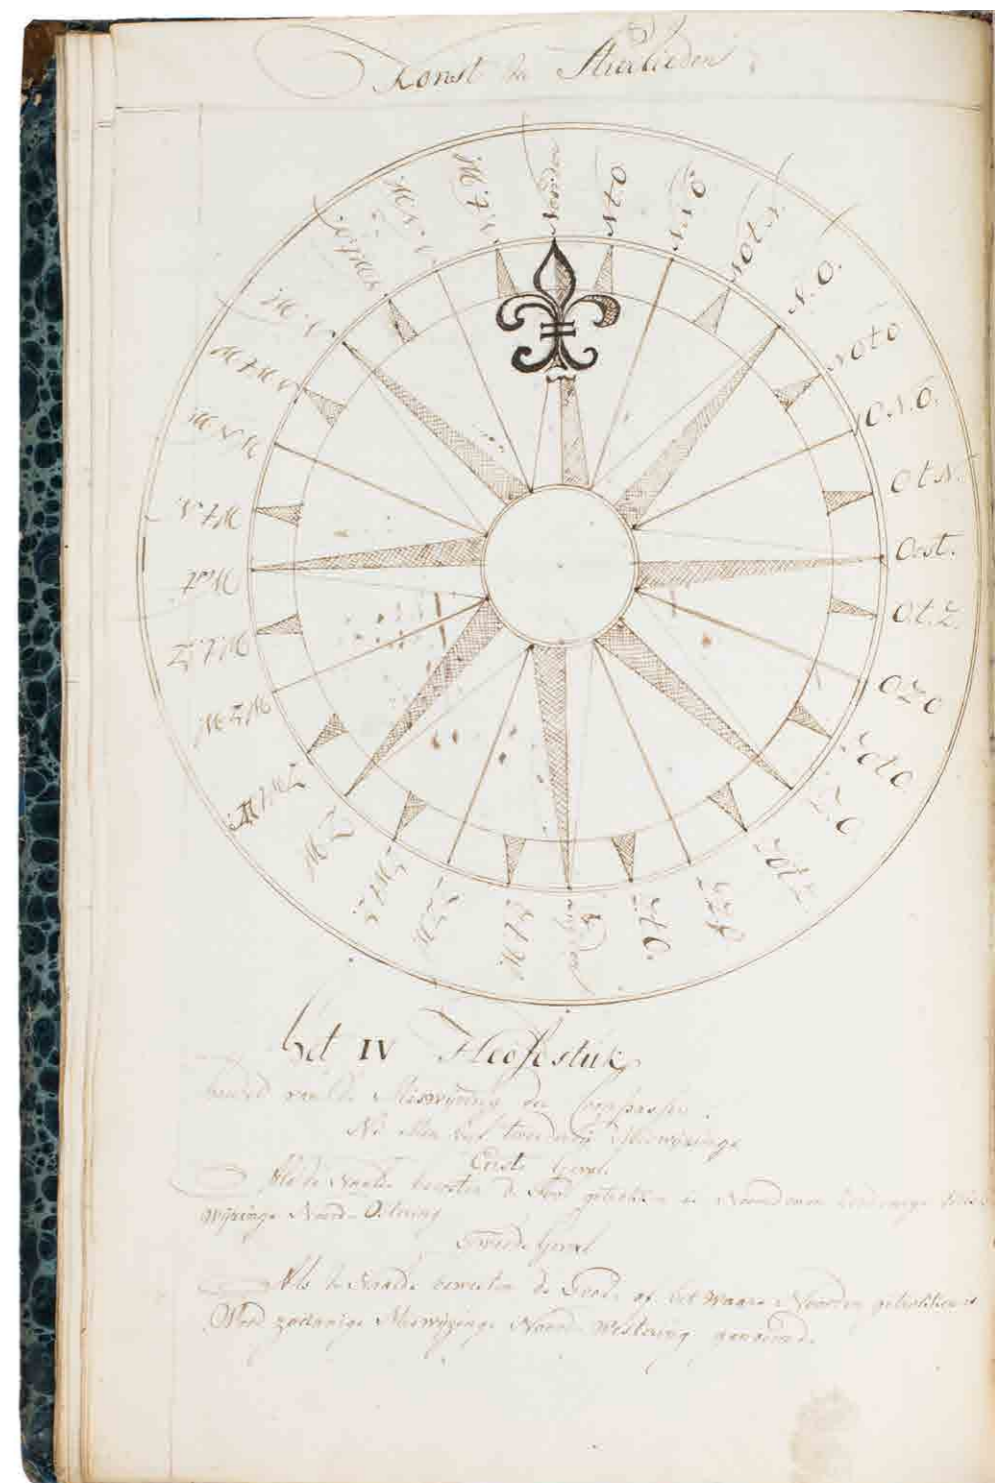 Konst der Stuurlieden
Noorden
N t O
N.N.O
NOt N
N.O.
NOtO
O.N.O.
OtN.
Oost.
O.t.Z.
OZO
ZOtO
Z.O
ZOtZ
ZZO
ZtO
Zuyden
ZtW
ZZW
ZWtZ
ZW
ZWtW
WZW
Wt.Z
West
Wt.N.
W.N.W
NWtW
N.W.
NWtN
N.N.W
N.t.W
het IV Hoofdstuk
van de Miswijzing der Compassen.
Eerste Geval
Als de Naalde beoosten de getrokken
Wijzinge Noord Oostering
Tweede Geval
Als de Naalde bewesten de of het Waare Noorden getrokken is
Word zodanige Miswijzinge Noord Westering genoemd.